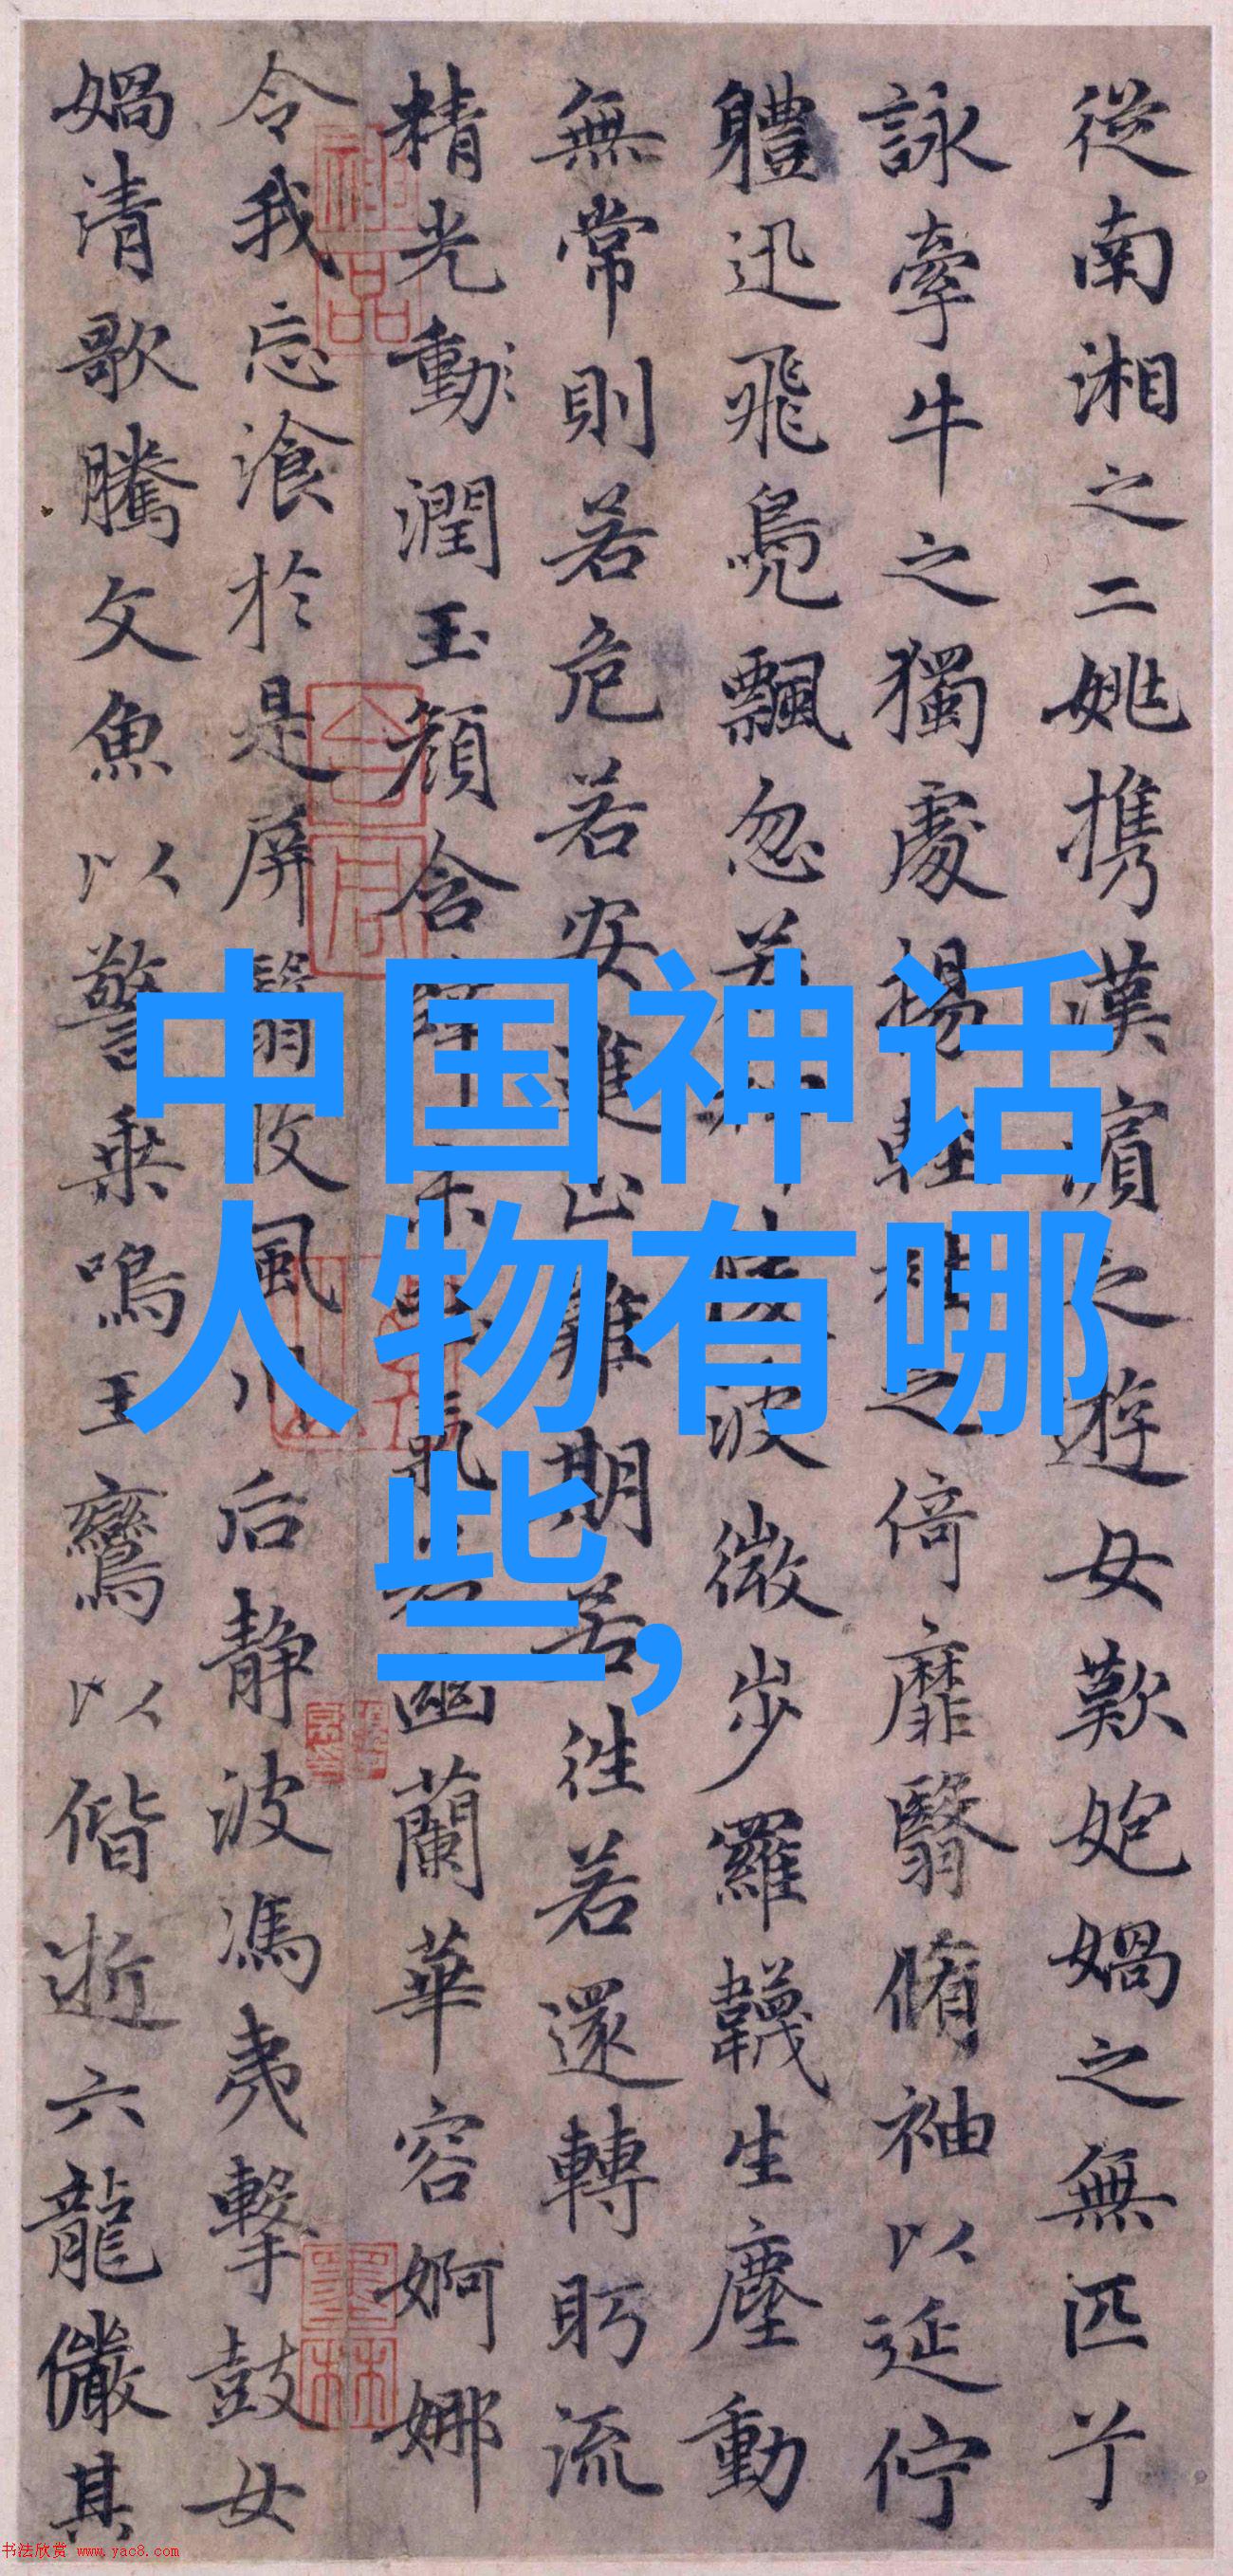 從南湘之二姚攜漢濱之遊女歎匏媧之無匹兮
詠牽牛之獨處揚輕袿之倚靡翳脩袖以延佇
軆迅飛鳧飄忽若神陵波微步羅韈生塵動
無常則若危若安進止難期若往若還轉眄流
精光動潤玉顏含辭未吐氣若幽蘭華容婀娜
令我忘湌於是屏翳收風川后靜波馮夷擊鼓女
媧清歌騰文魚以警乘鳴玉鸞以偕逝六龍儼其
神品
中国神话
人物有哪
些,
墨林
书法欣赏 www.yac8.com